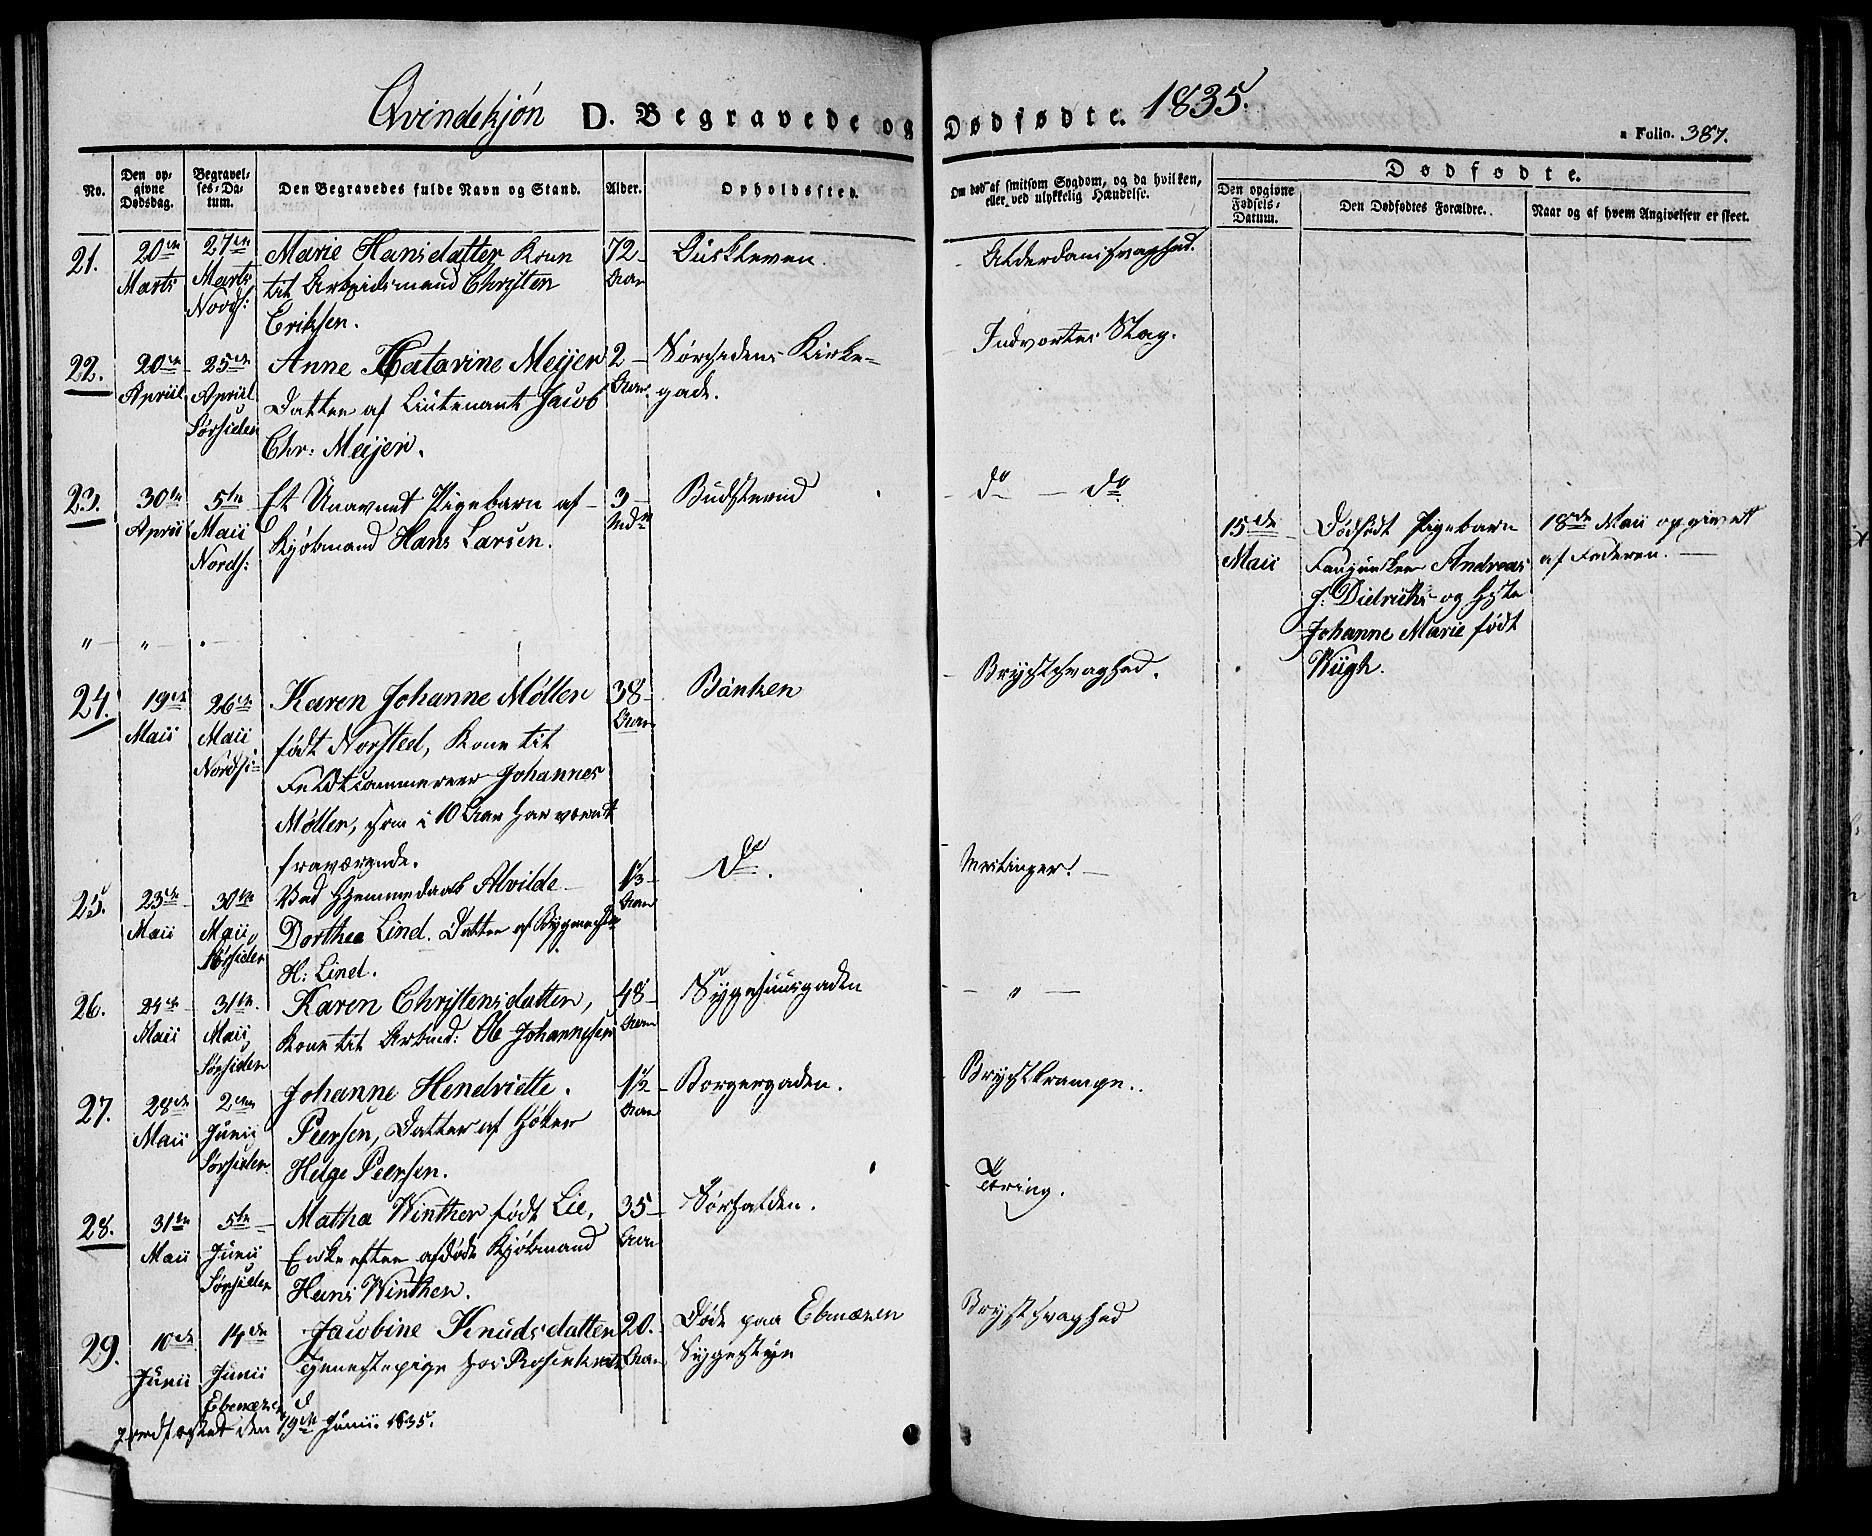 Qvindekjøn D. Begravede og Dødfødte. 1835.
a Folio. 387.
No.
Den op-
givne
Dødsdag.
Begravel-
ses-Da-
tum.
Den Begravedes fulde Navn og Stand.
Alder.
Opholdssted.
Om død af smitsom Sygdom, og da hvilken,
eller ved ulykkelig Hændelse.
Dødfødte.
Den opgivne
Fødsels-
Datum.
Den Dødfødtes Forældre.
Naar og af hvem Angivelsen er skeet.
21.
20de
Marts
27de
Marts
Nords:
Marie Hansdatter Kone
til Arbeidsmand Christen
Eriksen.
72
Aar
Alderdomssvaghed.
22.
20de
Apriil
25de
Apriil
Sørsiden
Anne Catarine Meijer
Datter af Lieutenant Jacob
Chr: Meijer.
2
Aar.
Sørsidens Kirke-
gade.
Indvortes Slag.
23.
30te
Apriil
5te
Maii
Nords:
Et Unavnet Pigebarn af
Kjøbmand Hans Larsen.
3
Mdr
do — do
15de
Maii
Dødfødt Pigebarn
Andreas
J: Dietrichs og Hustru
Johanne Marie født
Wiigh.
18de Maii opgivet
af Faderen. —
" " "
24.
19de
Maii
26de
Maii
Nordsi:
Karen Johanne Møller
født Norsted, Kone til
Johannes
Møller, som i 10 Aar har været
fraværende.
38
Aar
Banken
Brystsvaghed.
25.
23de
Maii
30te
Maii
Sørsiden
Ved Hjemmedaab Alvilde
Dorthea Lind. Datter af Bygmester
H: Lind.
1/3
Aar
Do.
Meslinger.
26.
24de
Maii
31te
Maii
Sørsiden
Karen Christensdatter,
Kone til Arbmd: Ole Johannesen
48
Aar
Sygehuusgaden
— " —
27.
28de
Maii
2den
Junii
Sørsiden
Johanne Hendriette.
Peersen, Datter af Høker
Helge Peersen.
1½
Aar
Borgergaden.
Brystkrampe.
28.
31te
Maii
5te
Junii
Sørsiden
Matha Winther født Lie,
Enke efter afdøde Kjøbmand
Hans Winther.
35
Aar
Sørhalden.
Tæring.
29.
10de
Junii
14de
Junii
Ebenæzer
Jacobine Knudsdatter
Tjenestepige hos
20.
Aar
Døde paa Ebenæzer
Brystsvaghed
den 19de Junii 1835.